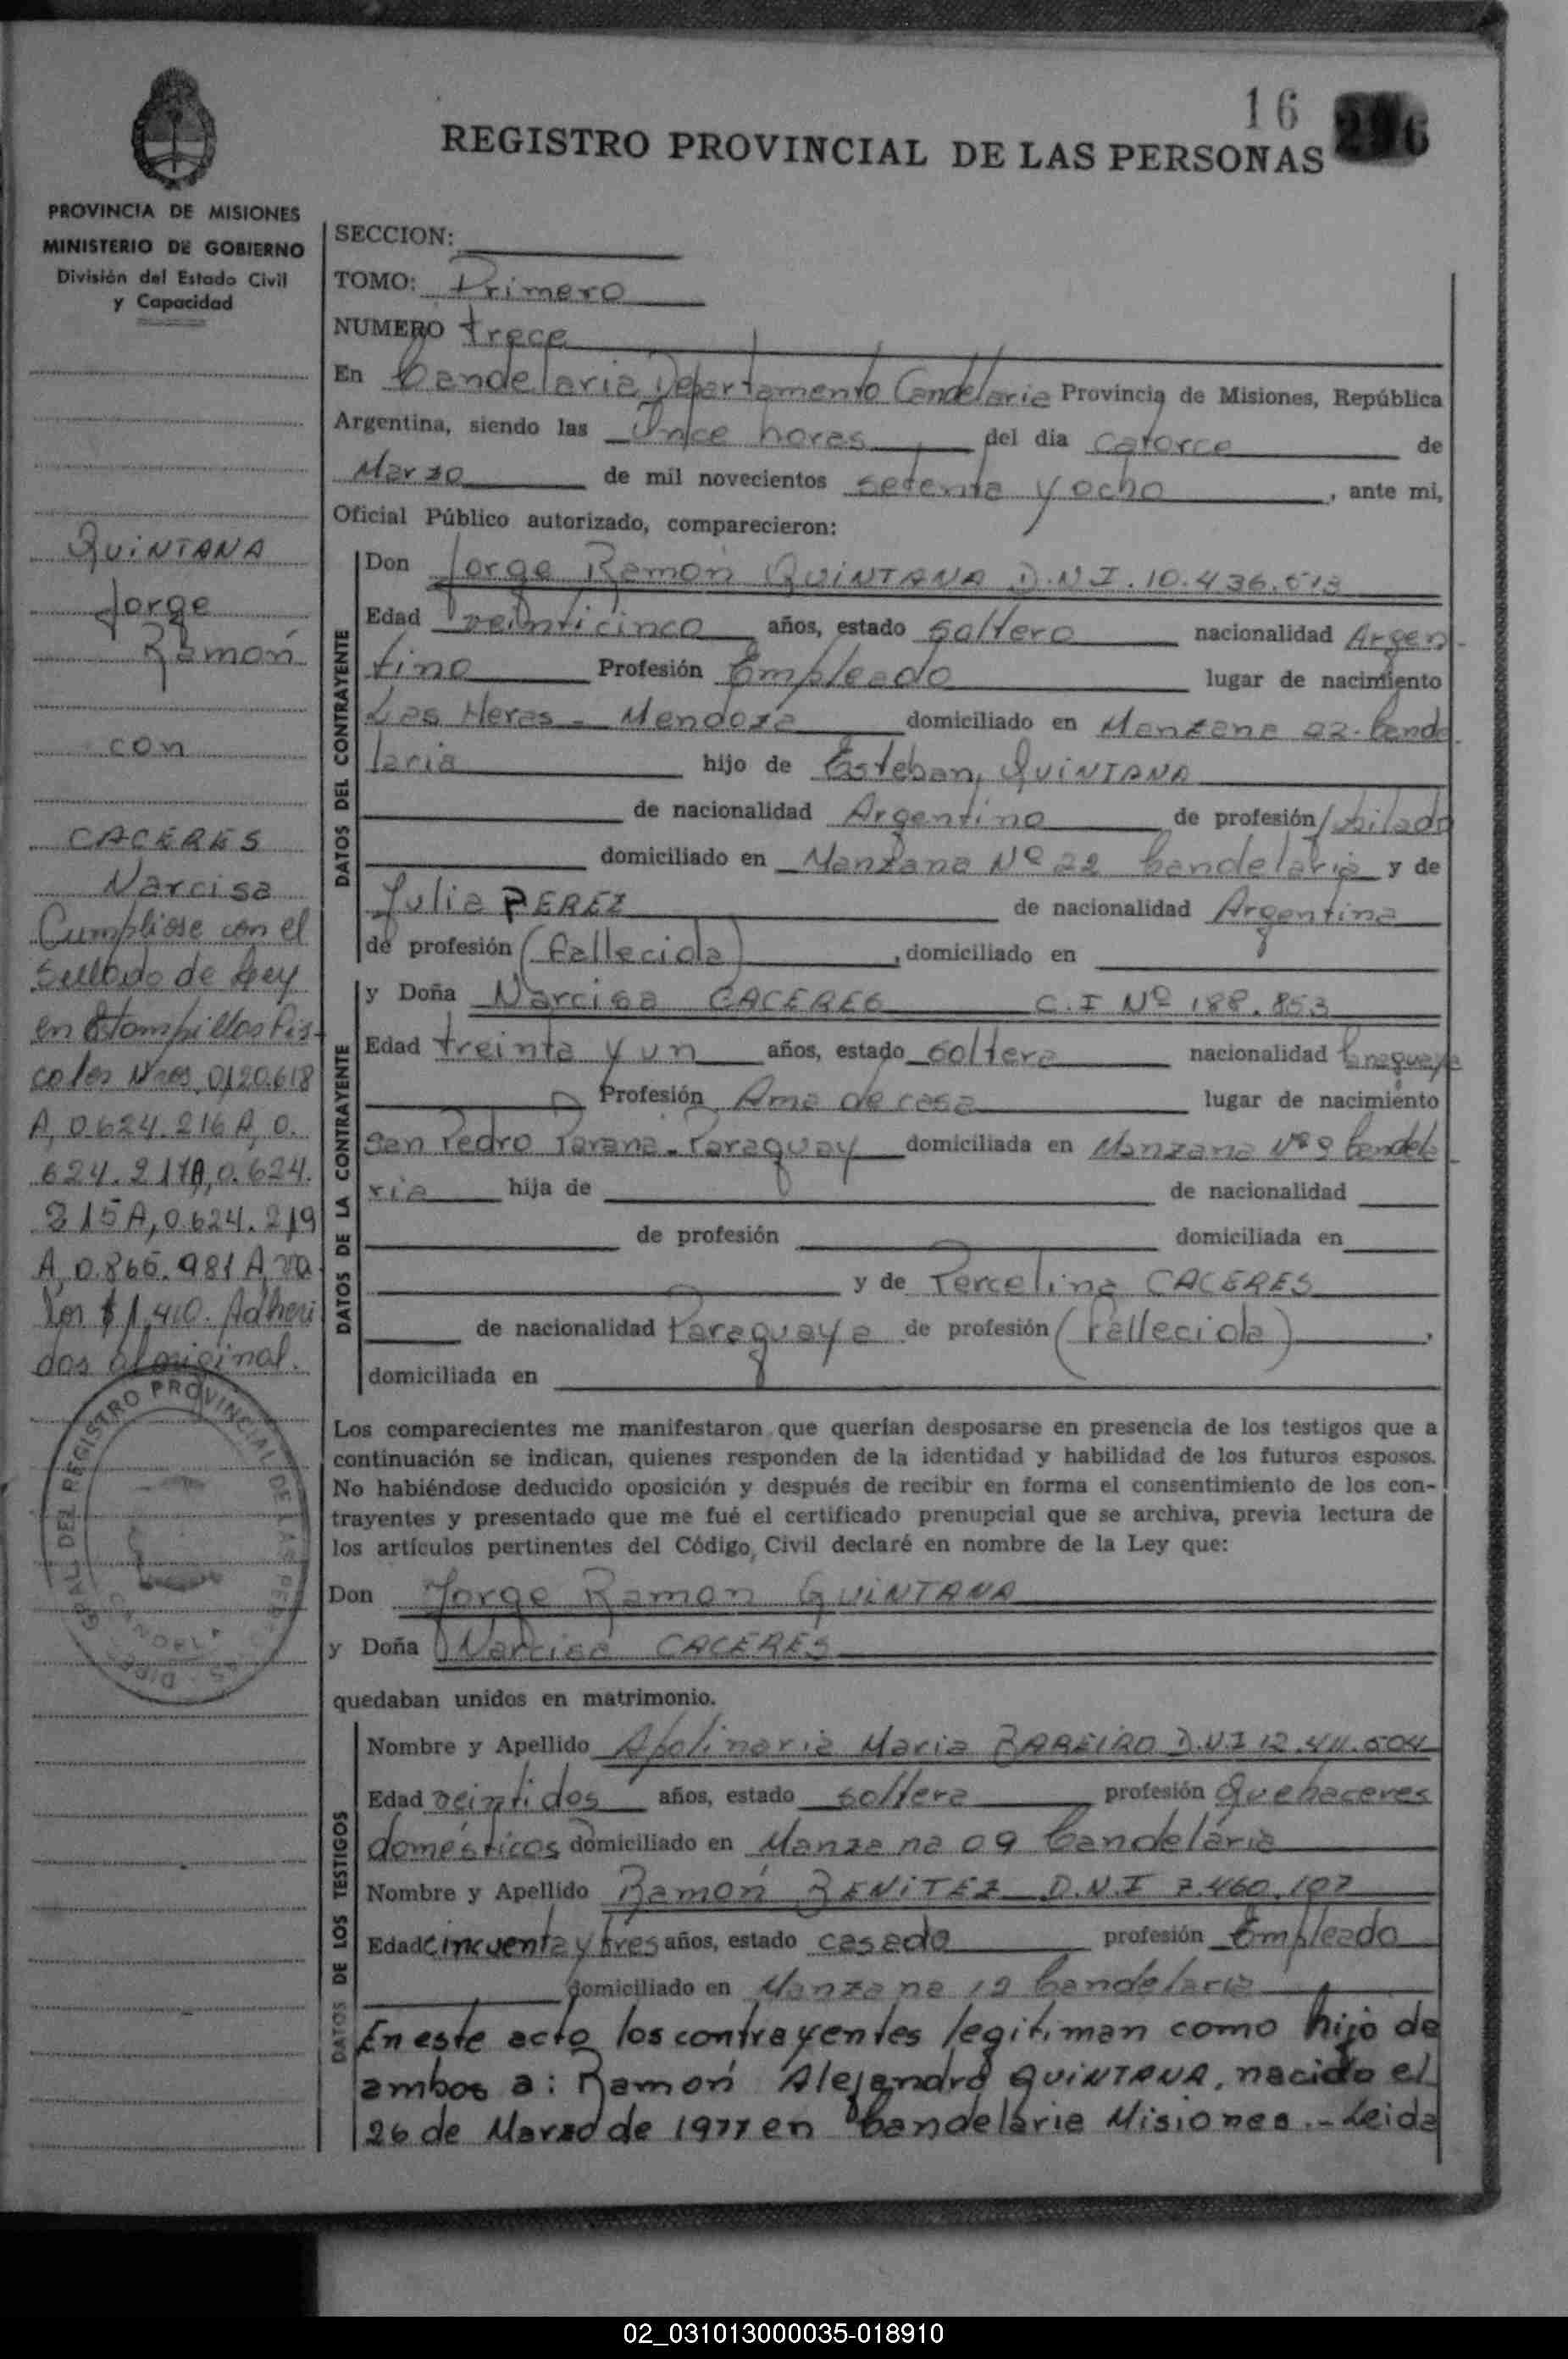 16
REGISTRO PROVINCIAL DE LAS PERSONAS
PROVINCIA DE MISIONES
MINISTERIO DE GOBIERNO
División del Estado Civil
y Capacidad
QUINTANA
Jorge
Ramón
con
CACERES
Narcisa
Cumpliose con el
Sellado de Ley
en Estampillas Fis-
cales Nros 0120.618
A, 0.624.216 A, 0.
624.217A, 0.624.
215A, 0.624.219
A, 0.865.981 A, va
lor $ 1,410. Adheri
dos al original.
SECCION:
TOMO: Primero
NUMERO trece
En Candelaria Departamento Candelaria Provincia de Misiones, República
Argentina, siendo las Once horas del día catorce de
Marzo de mil novecientos setenta y ocho, ante mi,
Oficial Público autorizado, comparecieron:
DATOS DEL CONTRAYENTE
Don Jorge Ramón QUINTANA D.N.I. 10.436.513
Edad veinticinco años, estado soltero nacionalidad Argen-
tino Profesión Empleado lugar de nacimiento
Las Heras - Mendoza domiciliado en Manzana 22- Cande-
laria hijo de Esteban, QUINTANA
de nacionalidad Argentino de profesión Jubilado
domiciliado en Manzana Nº 22 Candelaria y de
Julia PEREZ de nacionalidad Argentina
de profesión (fallecida), domiciliado en
DATOS DE LA CONTRAYENTE
y Doña Narcisa CACERES C.I Nº 188.853
Edad treinta y un años, estado soltera nacionalidad Paraguaya
Profesión Ama de casa lugar de nacimiento
San Pedro Paraná - Paraguay domiciliada en Manzana Nº 9 Candela-
ria hija de de nacionalidad
de profesión domiciliada en
y de Percelina CACERES
de nacionalidad Paraguaya de profesión (fallecida),
domiciliada en
Los comparecientes me manifestaron que querían desposarse en presencia de los testigos que a
continuación se indican, quienes responden de la identidad y habilidad de los futuros esposos.
No habiéndose deducido oposición y después de recibir en forma el consentimiento de los con-
trayentes y presentado que me fué el certificado prenupcial que se archiva, previa lectura de
los artículos pertinentes del Código Civil declaré en nombre de la Ley que:
Don Jorge Ramon QUINTANA
y Doña Narcisa CACERES
quedaban unidos en matrimonio.
DATOS DE LOS TESTIGOS
Nombre y Apellido Apolinaria Maria BAREIRO D.N.I
Edad veintidos años, estado soltera profesión Quehaceres
domésticos domiciliado en Manzana 09 Candelaria
Nombre y Apellido Ramón BENITEZ D.N.I 7.460.107
Edad cincuenta y tres años, estado casado profesión Empleado
domiciliado en Manzana 12 Candelaria
En este acto los contrayentes legitiman como hijo de
ambos a: Ramón Alejandro QUINTANA, nacido el
26 de Marzo de 1977 en Candelaria Misiones.- Leida
02_031013000035-018910